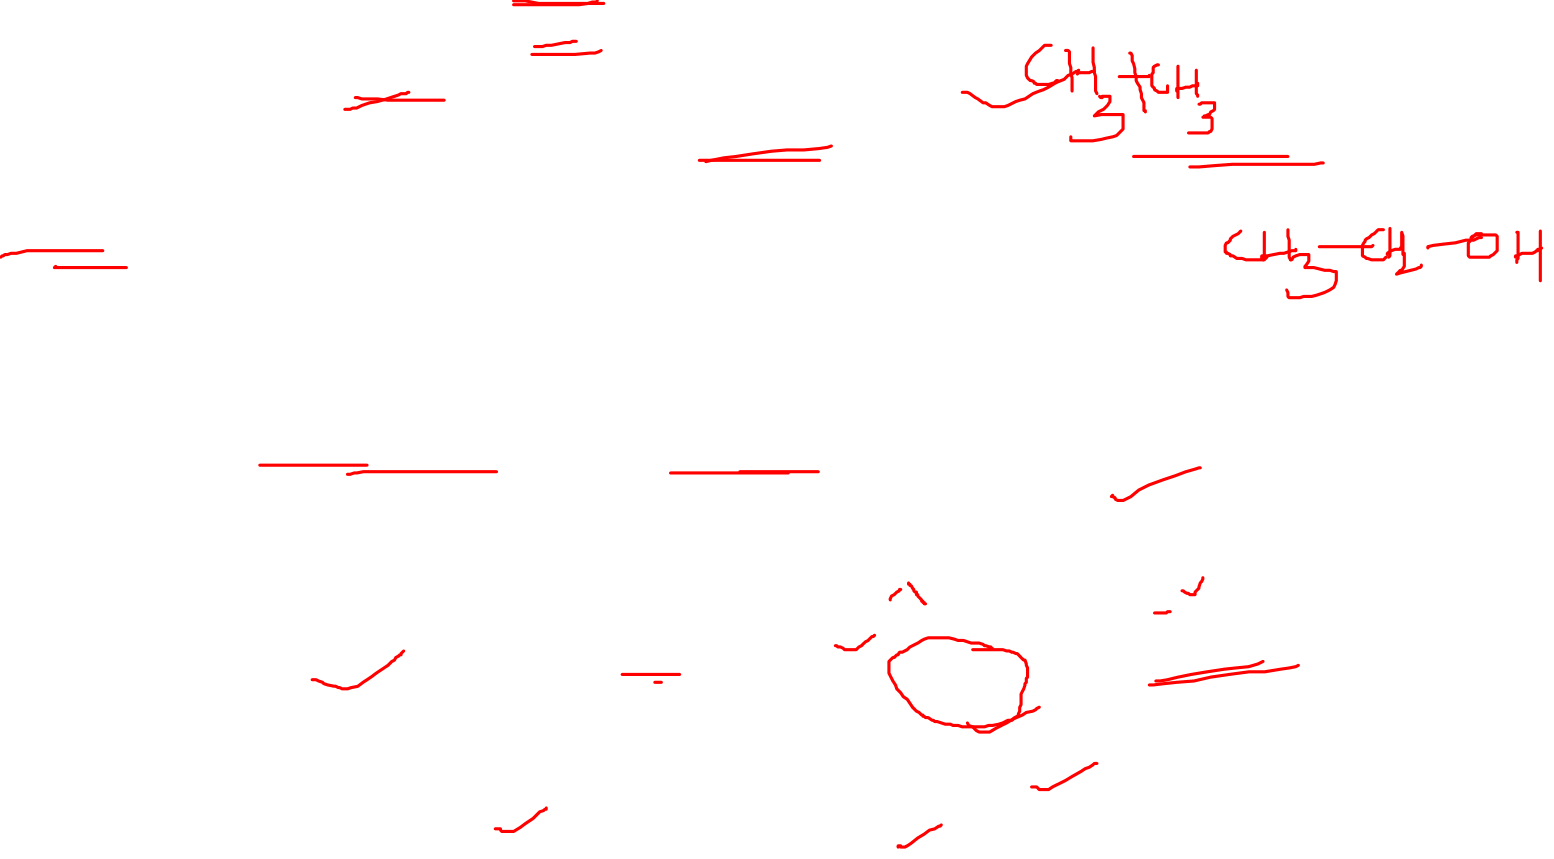 CH3+CH3
CH3-CH2-OH